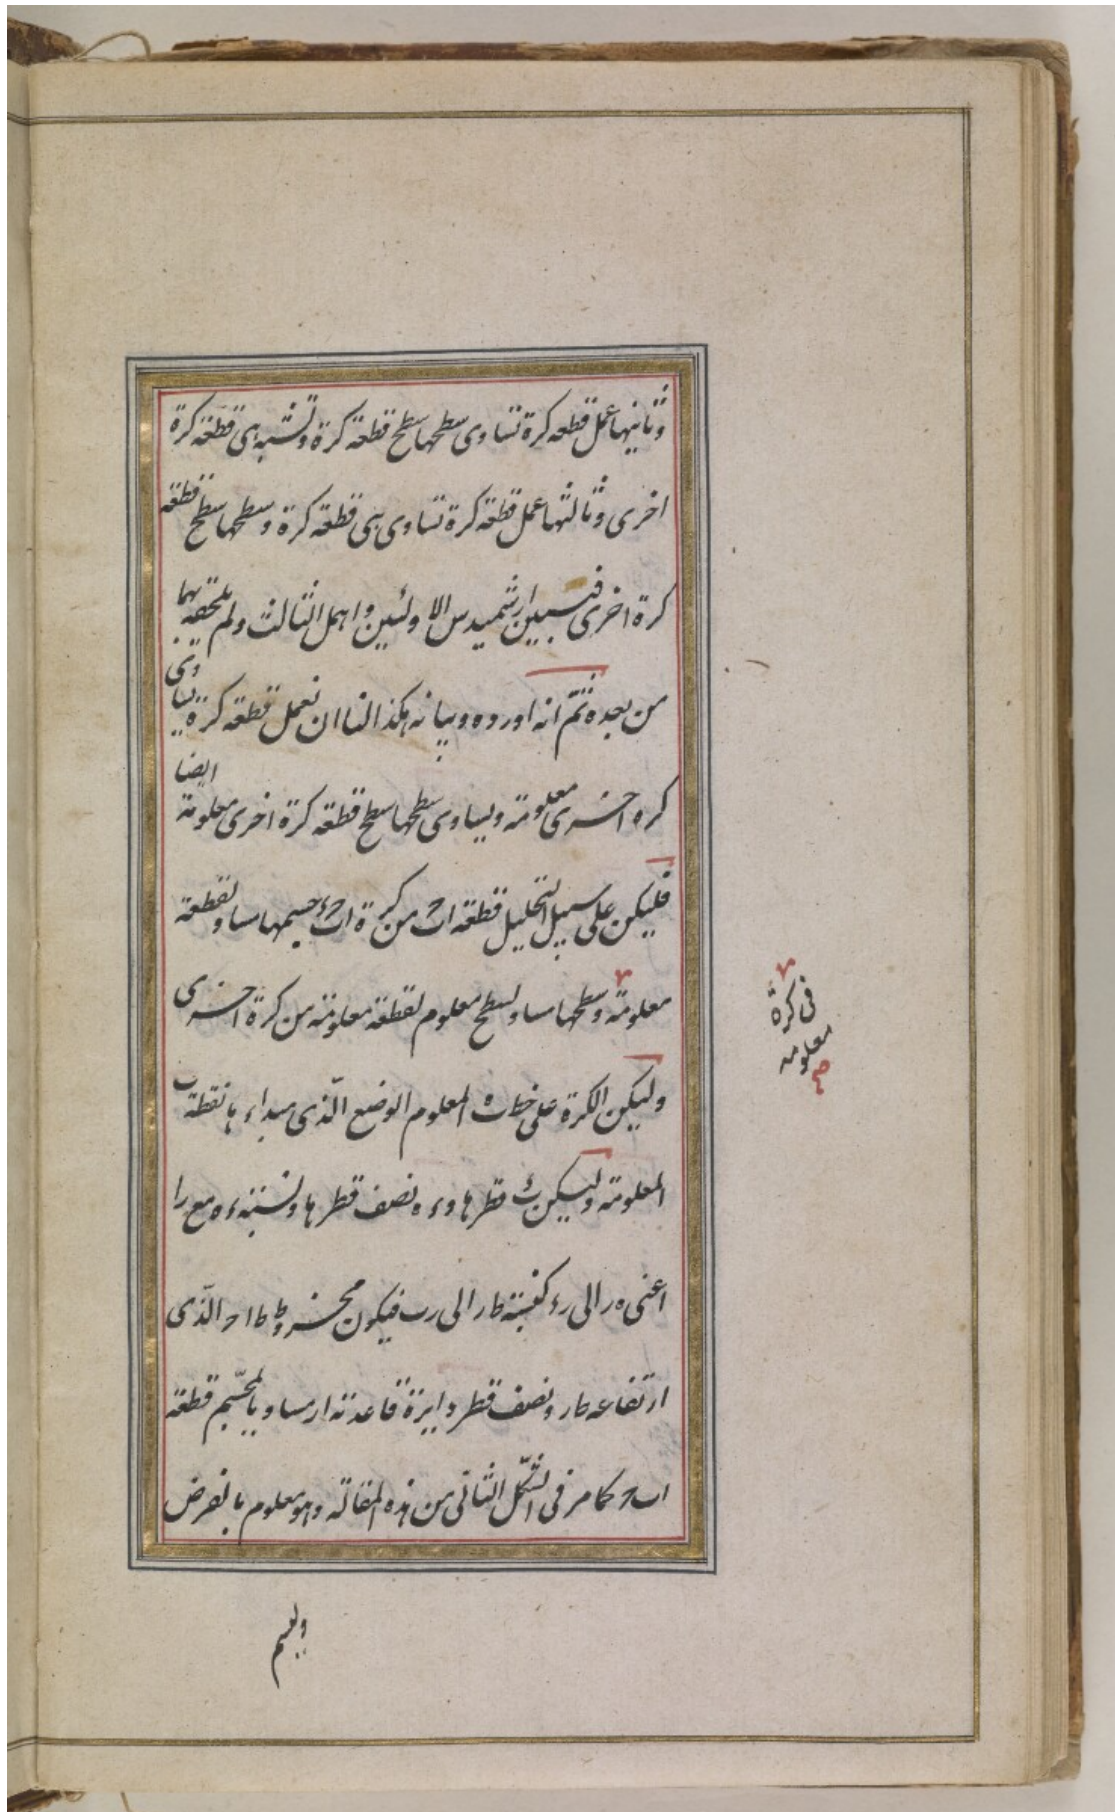 وثانيها عمل قطعه كرة تساوى سطحها سطح قطعة كرة وتشبه هى قطعة كرة
اخرى وثالثها عمل قطعة كرة تساوى هى قطعة كرة وسطحها سطح قطعة
كرة اخرى فتبين ارشميدس الاولئين واهمل الثالث ولم يلحقه بهما
من بعده ثم انه اورده وبيانه هكذا لنا ان نعمل قطعه كرة يساوى
كره اخرى معلومة ويساوى سطحها سطح قطعة كرة اخرى معلومة ايضا
فليكن على سبيل التحليل قطعة اٮح من كرة اٮحء جسيمها مساو لقطعة
معلومة وسطحها مساو لسطح معلوم لقطعة معلومة من كرة اخرى
فى كرة
معلومه
صح
وليكن الكرة على خط ٮه المعلوم الوضع الّذى مبداءها نقطة ٮ
المعلومة وليكن ٮء قطرها وءه نصف قطرها ولنسبة ءه مع را
اعنى ه ر الى رء كنسبة طر الى رٮ فيكون مخروط طاح الّذى
ارتفاعه طر ونصف قطر دايرة قاعدته ار مساويا لمجسّم قطعة
اٮح كما مر فى الشكل الثانى من هذه المقالة وهو معلوم بالفرض